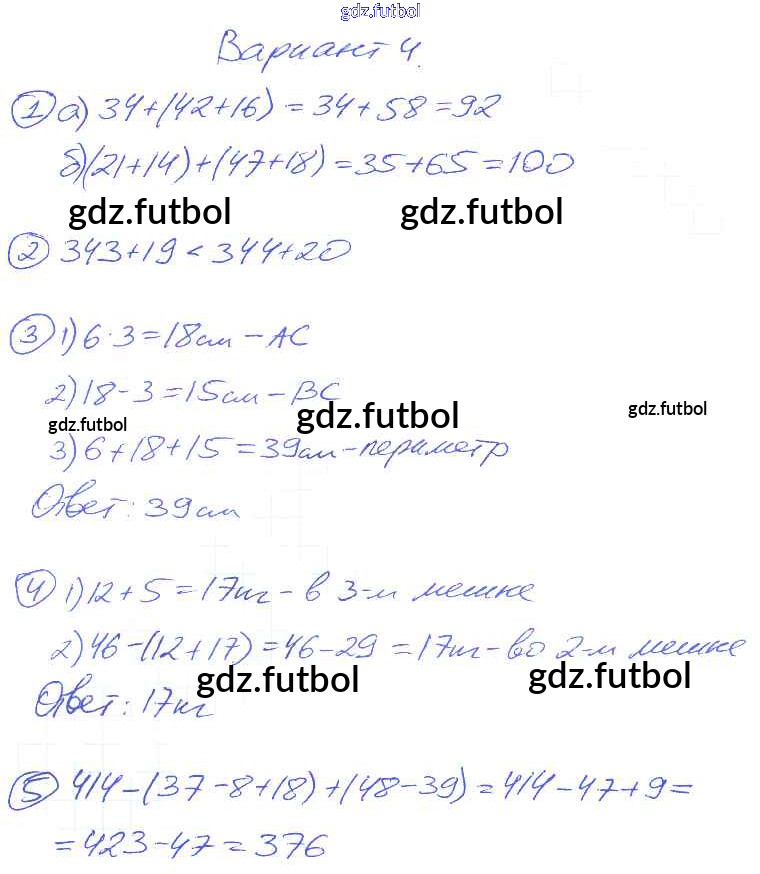 gdz.futbol
Вариант 4.
① а) 34+(42+16) = 34+58 = 92
б) (21+14)+(47+18) = 35+65 = 100
gdz.futbol gdz.futbol
② 343+19 < 344+20
③ 1) 6·3 = 18 см – AC
2) 18-3 = 15 см – BC
gdz.futbol gdz.futbol gdz.futbol
3) 6+18+15 = 39 см – периметр
Ответ: 39 см
④ 1) 12+5 = 17 кг – в 3-м мешке
2) 46-(12+17) = 46-29 = 17 кг – во 2-м мешке
gdz.futbol gdz.futbol
Ответ: 17 кг
⑤ 414-(37-8+18)+(48-39) = 414-47+9 =
= 423-47 = 376